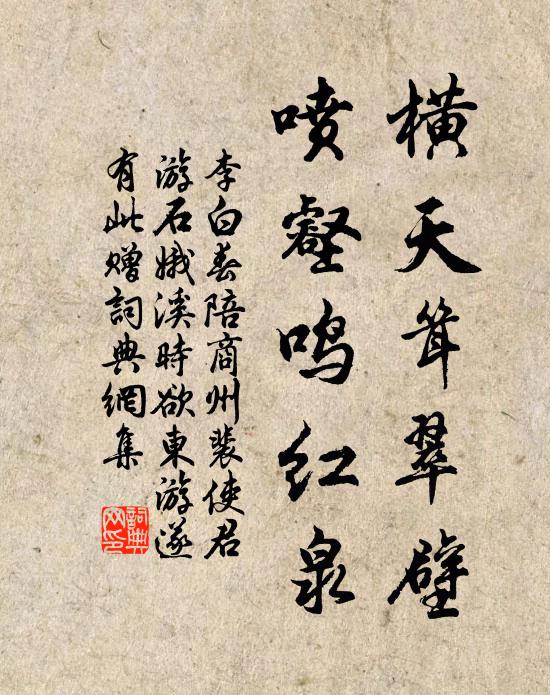 横天耸翠壁
喷壑鸣红泉
李白春陪商州裴使君
游石娥溪時欲東游遂
有此贈詞典網集
詞典网印